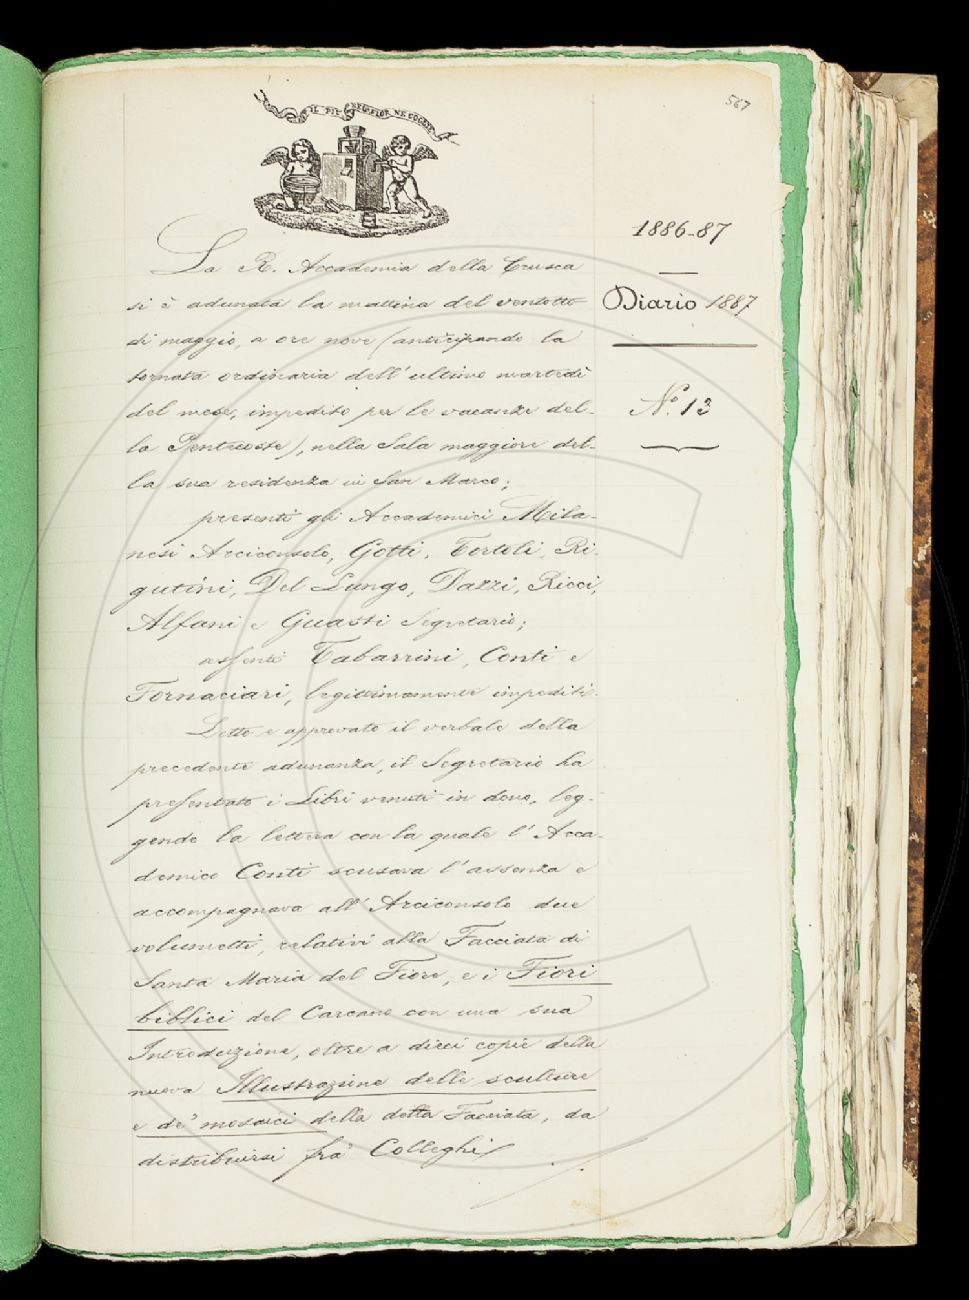 567
IL PIÙ BEL FIOR NE COGLIE
1886-87
Diario 1887
N.° 13
La R. Accademia della Crusca
si è adunata la mattina del ventotto
di maggio, a ore nove (anticipando la
tornata ordinaria dell'ultimo martedì
del mese, impedito per le vacanze del-
la Pentecoste), nella Sala maggiore del-
la sua residenza in San Marco;
presenti gli Accademici Mila-
nesi Arciconsolo, Gotti, Tortoli, Ri-
gutini, Del Lungo, Dazzi, Ricci,
Alfani e Guasti Segretario;
assenti Tabarrini, Conti e
Fornaciari, legittimamente impediti.
Letto e approvato il verbale della
precedente adunanza, il Segretario ha
presentato i Libri venuti in dono, leg-
gendo la lettera con la quale l'Acca-
demico Conti scusava l'assenza e
accompagnava all'Arciconsolo due
volumetti, relativi alla Facciata di
Santa Maria del Fiore, e i Fiori
biblici del Carcano con una sua
Introduzione, oltre a dieci copie della
nuova Illustrazione delle sculture
e de' mosaici della detta Facciata, da
distribuirsi fra' Colleghi